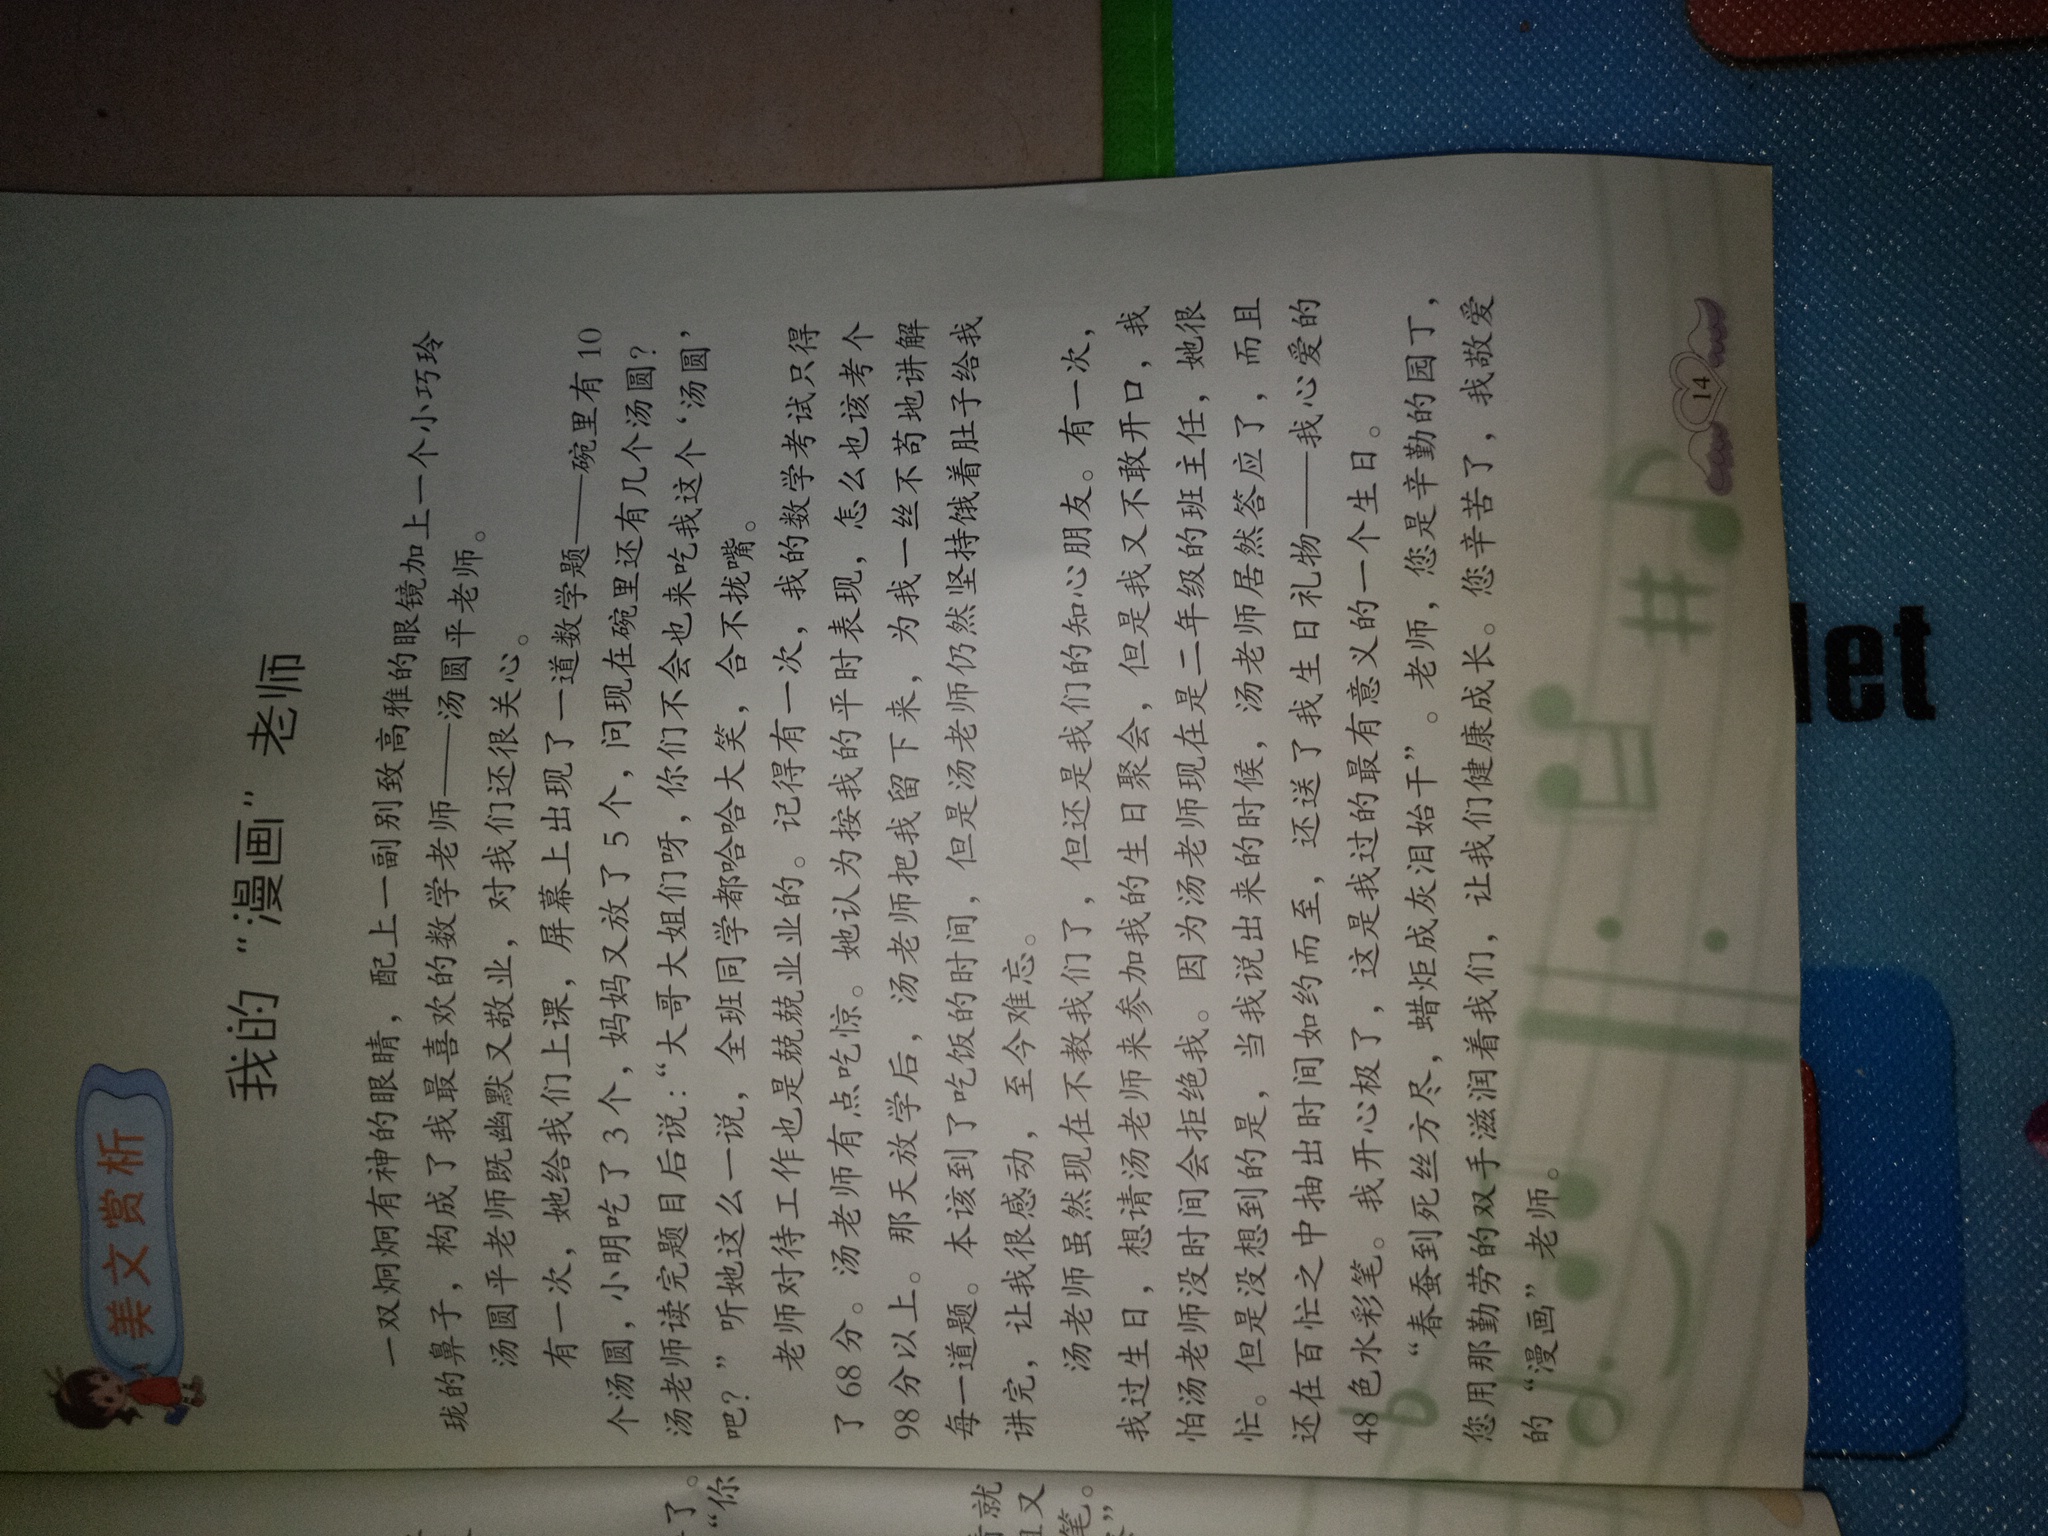 美文赏析
我的“漫画”老师
一双炯炯有神的眼睛，配上一副别致高雅的眼镜加上一个小巧玲
珑的鼻子，构成了我最喜欢的数学老师——汤圆平老师。
汤圆平老师既幽默又敬业，对我们还很关心。
有一次，她给我们上课，屏幕上出现了一道数学题——碗里有 10
个汤圆，小明吃了 3 个，妈妈又放了 5 个，问现在碗里还有几个汤圆？
汤老师读完题目后说：“大哥大姐们呀，你们不会也来吃我这个‘汤圆’
吧？”听她这么一说，全班同学都哈哈大笑，合不拢嘴。
老师对待工作也是兢兢业业的。记得有一次，我的数学考试只得
了 68 分。汤老师有点吃惊。她认为按我的平时表现，怎么也该考个
98 分以上。那天放学后，汤老师把我留下来，为我一丝不苟地讲解
每一道题。本该到了吃饭的时间，但是汤老师仍然坚持饿着肚子给我
讲完，让我很感动，至今难忘。
汤老师虽然现在不教我们了，但还是我们的知心朋友。有一次，
我过生日，想请汤老师来参加我的生日聚会，但是我又不敢开口，我
怕汤老师没时间会拒绝我。因为汤老师现在是二年级的班主任，她很
忙。但是没想到的是，当我说出来的时候，汤老师居然答应了，而且
还在百忙之中抽出时间如约而至，还送了我生日礼物——我心爱的
48 色水彩笔。我开心极了，这是我过的最有意义的一个生日。
“春蚕到死丝方尽，蜡炬成灰泪始干”。老师，您是辛勤的园丁，
您用那勤劳的双手滋润着我们，让我们健康成长。您辛苦了，我敬爱
的“漫画”老师。
14
了。
“你
就
又
笔。
let